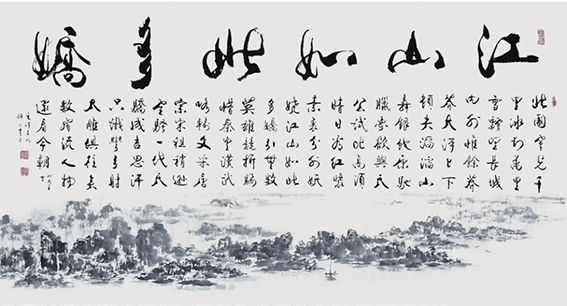 江山如此多嬌
北國風光千
里冰封萬里
雪飄望長城
內外惟餘莽
莽大河上下
頓失滔滔山
舞銀蛇原馳
臘象欲與天
公試比高須
晴日看紅裝
素裹分外妖
嬈江山如此
多嬌引無數
英雄競折腰
惜秦皇漢武
略輸文采唐
宗宋祖稍遜
風騷一代天
驕成吉思汗
只識彎弓射
大雕俱往矣
數風流人物
還看今朝